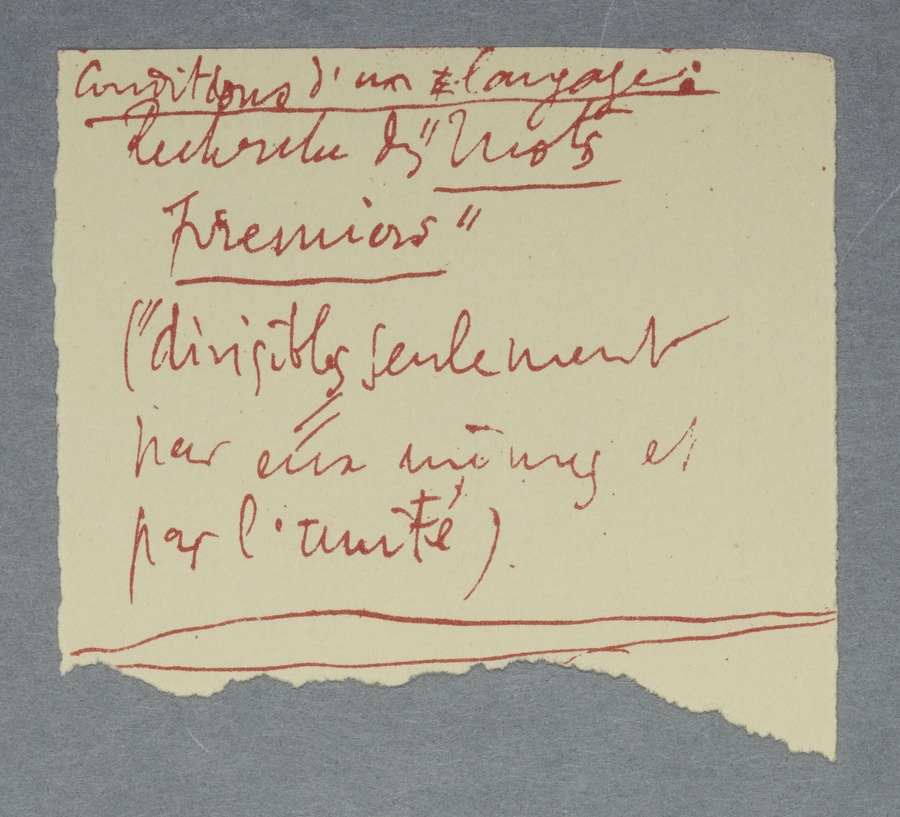 Conditions d'un langage :
Recherche des "Mots
Premiers"
("divisibles seulement
par eux mêmes et
par l'unité).